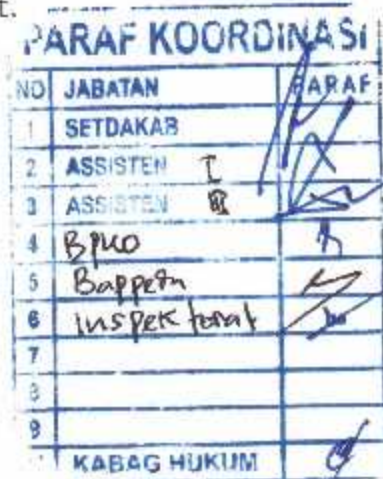 t.
PARAF KOORDINASI
NO JABATAN PARAF
1 SETDAKAB
2 ASSISTEN I
3 ASSISTEN
4
5
6 Inspektorat
7
8
9
KABAG HUKUM